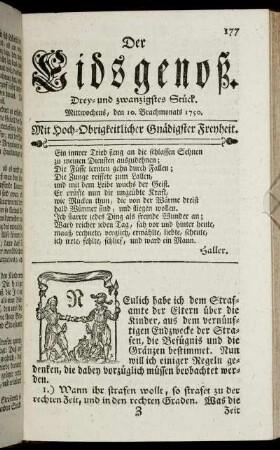 177
Der
Eidsgenoß.
Drey- und zwanzigstes Stück.
Mittwochens, den 10. Brachmonats 1750.
Mit Hoch-Obrigkeitlicher Gnädigster Freyheit.
Ein innrer Trieb fang an die schlaffen Sehnen
zu meinen Diensten auszudehnen;
Die Füsse lernten gehn durch Fallen;
Die Zunge reiffte zum Lallen,
und mit dem Leibe wuchs der Geist.
Er prüfte nun die ungeübte Kraft,
wie Mucken thun, die von der Wärme dreist
halb Würmer sind, und fliegen wollen.
Ich starrte jedes Ding als fremde Wunder an;
Ward reicher jeden Tag, sah vor und hinter heute,
maaß, rechnete, verglich, erwählte, liebte, scheute,
ich irrte, fehlte, schlief, und ward ein Mann.
Haller.
NEulich habe ich dem Straf-
amte der Eltern über die
Kinder, aus dem vernünfti-
gen Endzwecke der Stra-
fen, die Befugnis und die
Gränzen bestimmet. Nun
will ich einiger Regeln ge-
denken, die dabey vorzüglich müssen beobachtet wer-
den.
1.) Wann ihr strafen wollt, so strafet zu der
rechten Zeit, und in den rechten Graden. Was die
Z
Zeit